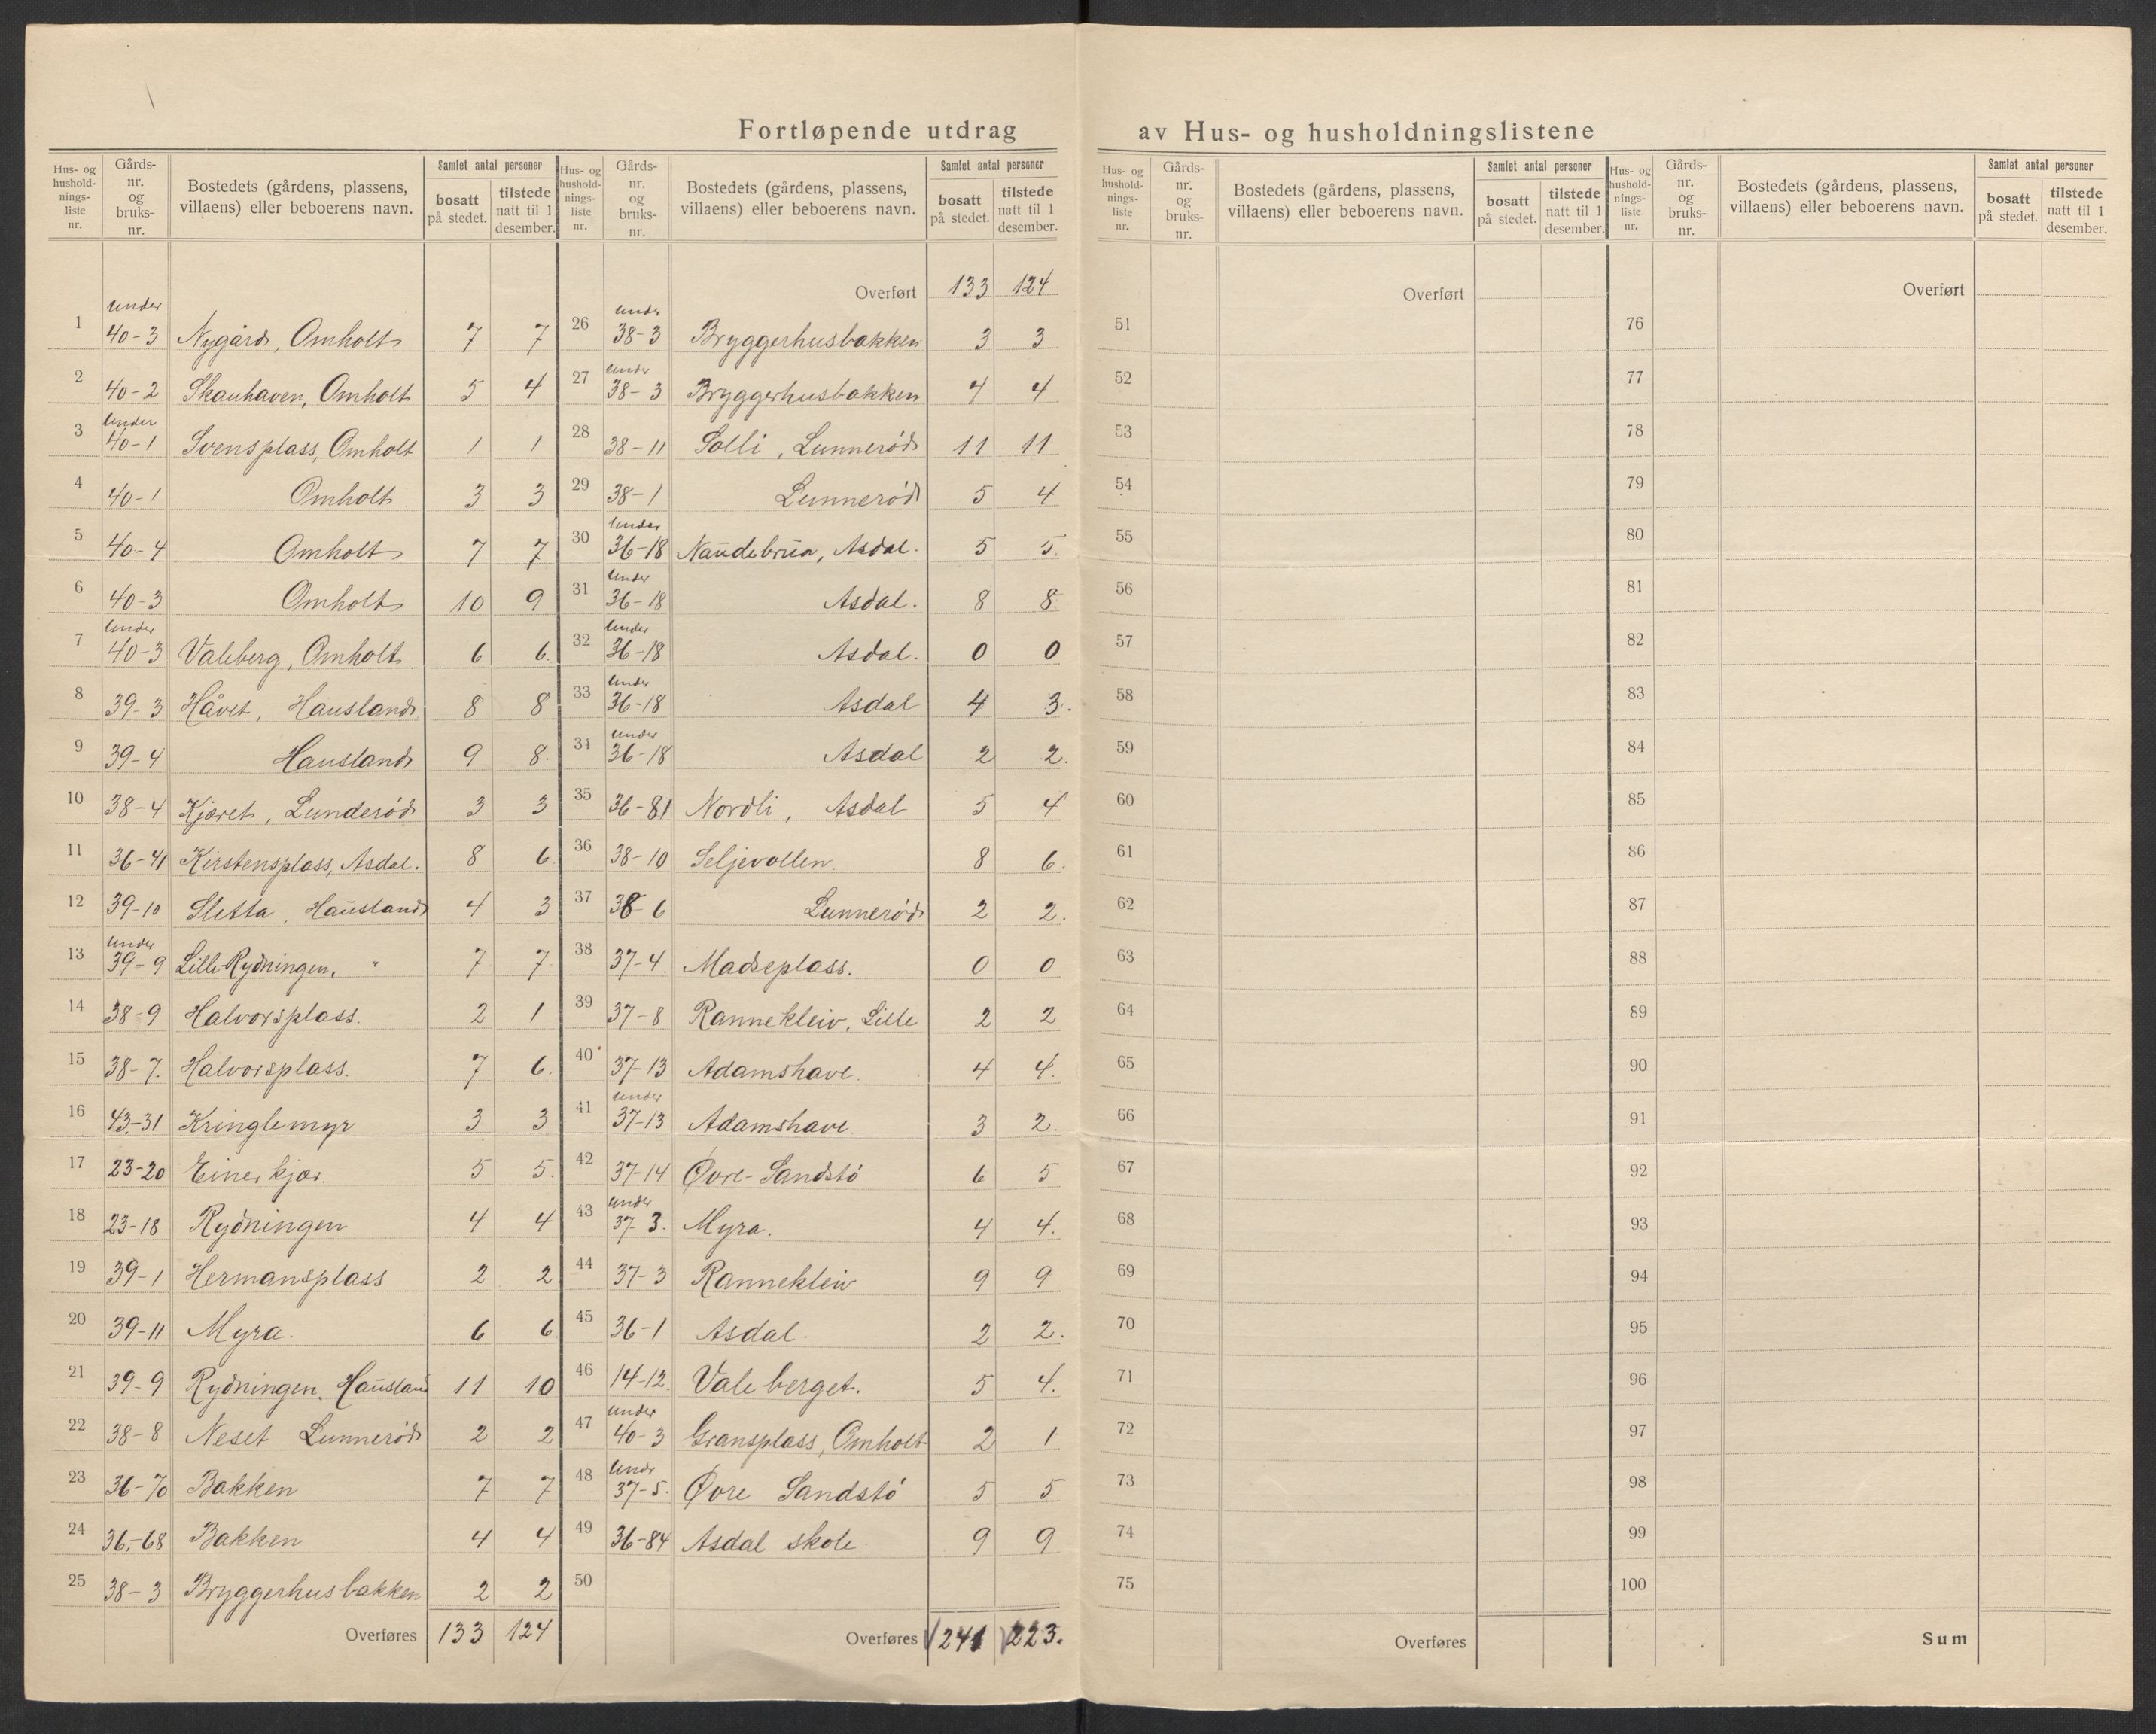 Fortløpende utdrag av Hus- og husholdningslistene
Hus- og hushold- nings- liste nr. Gårds- nr. og bruks- nr. Bostedets (gårdens, plassens, villaens) eller beboerens navn. Samlet antal personer bosatt på stedet. tilstede natt til 1 desember.
1 under 40-3 Nygård, Omholt 7 7
2 40-2 Skauhaven, Omholt 5 4
3 under 40-1 Svensplass, Omholt 1 1
4 40-1 Omholt 3 3
5 40-4 Omholt 7 7
6 40-3 Omholt 10 9
7 under 40-3 Valeberg, Omholt 6 6.
8 39-3 Håvet, Hausland 8 8
9 39-4 Hausland 9 8.
10 38-4 Kjæret, Lunderød 3 3
11 36-41 Kirstensplass, Asdal. 8 6
12 39-10 Sletta, Hausland 4 3
13 under 39-9 Lille Rydningen, " 7 7
14 38-9 Halvorsplass. 2 1
15 38-7. Halvorsplass. 7 6.
16 43-31 Kringlemyr 3 3
17 23-20 Einerkjær. 5 5.
18 23-18 Rydningen 4 4
19 39-1 Hermansplass 2 2
20 39-11 Myra. 6 6
21 39-9 Rydningen, Hausland 11 10
22 38-8 Neset Lunnerød 2 2
23 36-70 Bakken 7 7
24 36-68 Bakken 4 4
25 38-3 Bryggerhusbakken 2 2
Overføres 133 124
Hus- og hushold- nings- liste nr. Gårds- nr. og bruks- nr. Bostedets (gårdens, plassens, villaens) eller beboerens navn. Samlet antal personer bosatt på stedet. tilstede natt til 1 desember.
Overført 133 124
26 under 38-3 Bryggerhusbakken 3 3
27 under 38-3 Bryggerhusbakken 4 4
28 38-11 Solli, Lunnerød 11 11
29 38-1 Lunnerød 5 4
30 under 36-18 Naudebrua, Asdal. 5 5.
31 under 36-18 Asdal. 8 8
32 under 36-18 Asdal. 0 0
33 under 36-18 Asdal 4 3.
34 under 36-18 Asdal 2 2.
35 36-81 Nordli, Asdal 5 4
36 38-10 Seljevollen. 8 6.
37 38-6 Lunnerød 2 2.
38 37-4. Madseplass. 0 0
39 37-8 Rannekleiv, Lille 2 2
40 37-13 Adamshave. 4 4.
41 under 37-13 Adamshave 3 2.
42 37-14 Øvre-Sandstø 6 5
43 under 37-3. Myra. 4 4.
44 37-3 Rannekleiv 9 9
45 36-1 Asdal. 2 2.
46 14-12. Valeberget. 5 4.
47 under 40-3 Gransplass, Omholt 2 1
48 undr 37-5. Øvre Sandstø 5 5
49 36-84 Asdal skole 9 9
50
Overføres 241 223.
Hus- og hushold- nings- liste nr. Gårds- nr. og bruks- nr. Bostedets (gårdens, plassens, villaens) eller beboerens navn. Samlet antal personer bosatt på stedet. tilstede natt til 1 desember.
Overført
51
52
53
54
55
56
57
58
59
60
61
62
63
64
65
66
67
68
69
70
71
72
73
74
75
Overføres
Hus- og hushold- nings- liste nr. Gårds- nr. og bruks- nr. Bostedets (gårdens, plassens, villaens) eller beboerens navn. Samlet antal personer bosatt på stedet. tilstede natt til 1 desember.
Overført
76
77
78
79
80
81
82
83
84
85
86
87
88
89
90
91
92
93
94
95
96
97
98
99
100
Sum